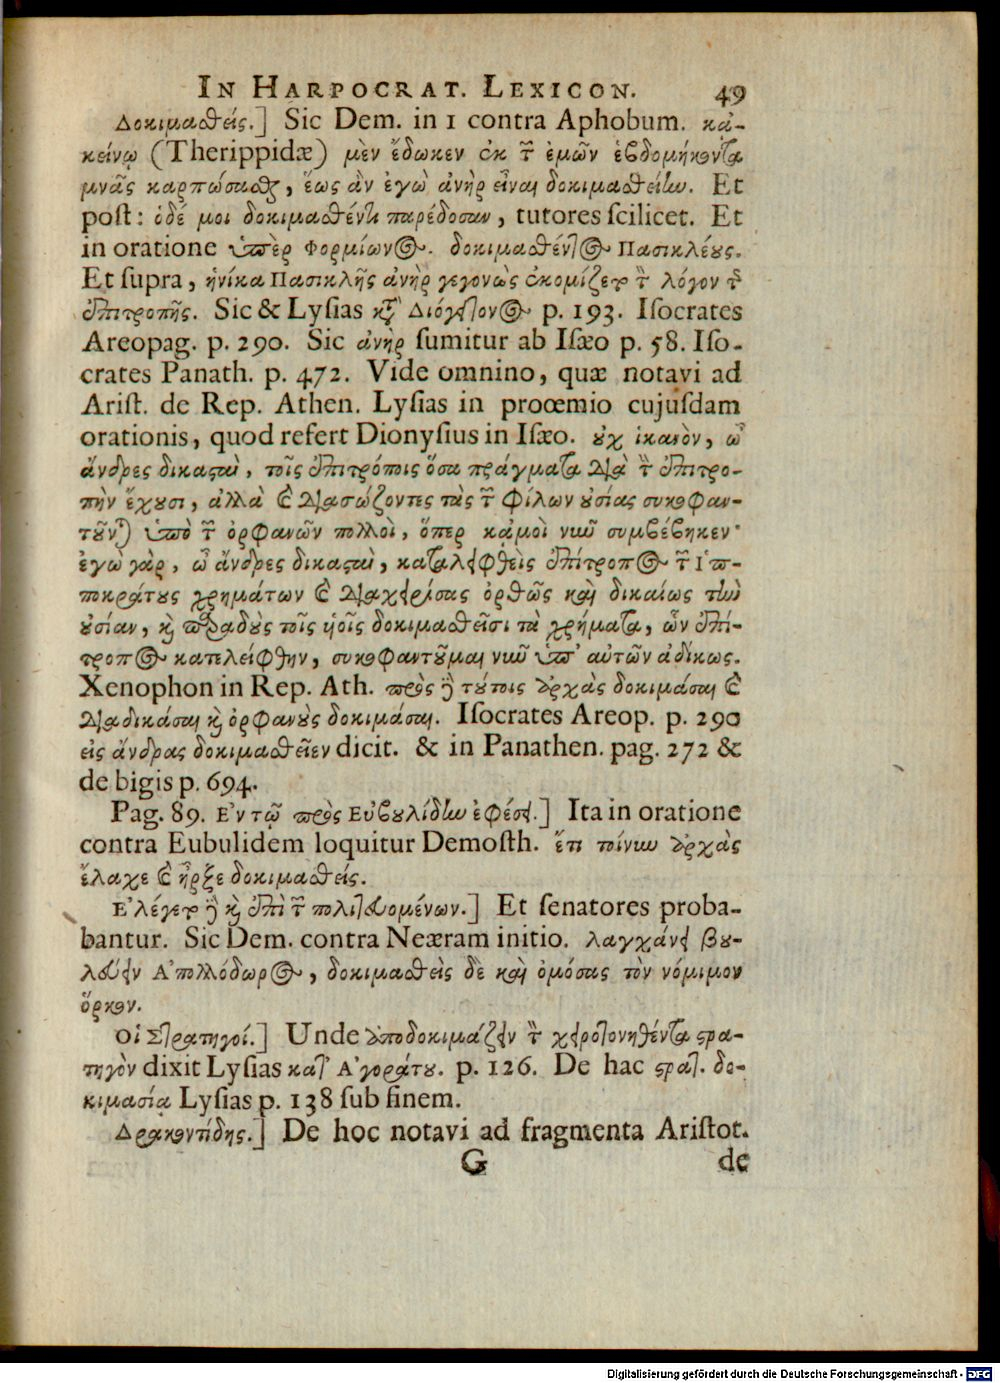 IN HARPOCRAT. LEXICON. 49
Δοκιμασθείς.] Sic Dem. in 1 contra Aphobum. κἀ-
κείνῳ (Therippidæ) μὲν ἔδωκεν ἐκ τῶν ἐμῶν ἑβδομήκοντα
μνᾶς καρπώσασθαι, ἕως ἂν ἐγὼ ἀνὴρ εἶναι δοκιμασθείην. Et
poſt: ὁδέ μοι δοκιμασθέντι παρέδοσαν, tutores ſcilicet. Et
in oratione ὑπὲρ Φορμίωνος. δοκιμασθέντος Πασικλέους.
Et ſupra, ἡνίκα Πασικλῆς ἀνὴρ γεγονὼς ἐκομίζετο τὸν λόγον τῆς
ἐπιτροπῆς. Sic & Lyſias κατὰ Διογείτονος p. 193. Iſocrates
Areopag. p. 290. Sic ἀνὴρ ſumitur ab Iſæo p. 58. Iſo-
crates Panath. p. 472. Vide omnino, quæ notavi ad
Ariſt. de Rep. Athen. Lyſias in proœmio cujuſdam
orationis, quod refert Dionyſius in Iſæo. οὐχ ἱκανὸν, ὦ
ἄνδρες δικασταὶ, τοῖς ἐπιτρόποις ὅσα πράγματα διὰ τὴν ἐπιτρο-
πὴν ἔχουσι, ἀλλὰ καὶ διασώζοντες τὰς τῶν φίλων οὐσίας συκοφαν-
τοῦνται ὑπὸ τῶν ὀρφανῶν πολλοὶ, ὅπερ κἀμοὶ νῦν συμβέβηκεν·
ἐγὼ γὰρ, ὦ ἄνδρες δικασταὶ, καταλειφθεὶς ἐπίτροπος τῶν Ἱπ-
ποκράτους χρημάτων καὶ διαχειρίσας ὀρθῶς καὶ δικαίως τὴν
οὐσίαν, καὶ παραδοὺς τοῖς υἱοῖς δοκιμασθεῖσι τὰ χρήματα, ὧν ἐπί-
τροπος κατελείφθην, συκοφαντοῦμαι νῦν ὑπ' αὐτῶν ἀδίκως.
Xenophon in Rep. Ath. πρὸς δὲ τούτοις ἀρχὰς δοκιμάσαι καὶ
διαδικάσαι καὶ ὀρφανοὺς δοκιμάσαι. Iſocrates Areop. p. 290
εἰς ἄνδρας δοκιμασθεῖεν dicit. & in Panathen. pag. 272 &
de bigis p. 694.
Pag. 89. Ἐν τῷ πρὸς Εὐβουλίδην ἐφέσει.] Ita in oratione
contra Eubulidem loquitur Demoſth. ἔτι τοίνυν ἀρχὰς
ἔλαχε καὶ ἦρξε δοκιμασθείς.
Ἐλέγετο δὲ καὶ ἐπὶ τῶν πολιτευομένων.] Et ſenatores proba-
bantur. Sic Dem. contra Neæram initio. λαγχάνει βου-
λεύειν Ἀπολλόδωρος, δοκιμασθεὶς δὲ καὶ ὀμόσας τὸν νόμιμον
ὅρκον.
Οἱ Στρατηγοί.] Unde ἀποδοκιμάζειν τὸν χειροτονηθέντα στρα-
τηγὸν dixit Lyſias κατ' Ἀγοράτου. p. 126. De hac στρατ. δο-
κιμασίᾳ Lyſias p. 138 ſub finem.
Δρακοντίδης.] De hoc notavi ad fragmenta Ariſtot.
G de
Digitalisierung gefördert durch die Deutsche Forschungsgemeinschaft - DFG